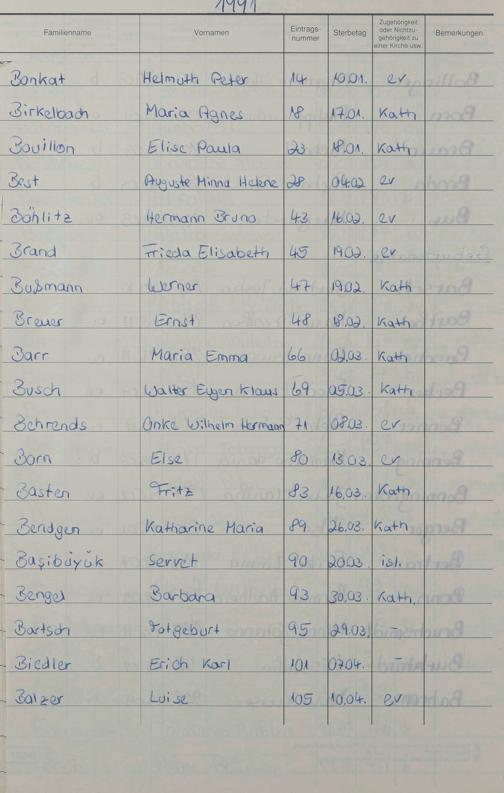 1991
Familienname Vornamen Eintrags-nummer Sterbetag Zugehörigkeit oder Nichtzu-gehörigkeit zu einer Kirche usw. Bemerkungen
Bonkat Helmuth Peter 14 10.01. ev
Birkelbach Maria Agnes 18 17.01. Kath
Bouillon Elise Paula 23 18.01. Kath
Best Auguste Minna Helene 28 04.02 ev
Böhlitz Hermann Bruno 43 16.02. ev
Brand Frieda Elisabeth 45 19.02. ev
Bußmann Werner 47 19.02. Kath
Breuer Ernst 48 18.02. Kath
Barr Maria Emma 66 02.03. Kath
Busch Walter Eugen Klaus 69 05.03. Kath
Behrends Onke Wilhelm Hermann 71 08.03. ev
Born Else 80 13.03. ev
Basten Fritz 83 16.03. Kath
Bendgen Katharine Maria 89 26.03. Kath
Başibüyük Servet 90 20.03. isl.
Bengel Barbara 93 30.03. Kath.
Bartsch Totgeburt 95 29.03. -
Biedler Erich Karl 101 07.04. -
Balzer Luise 105 10.04. ev